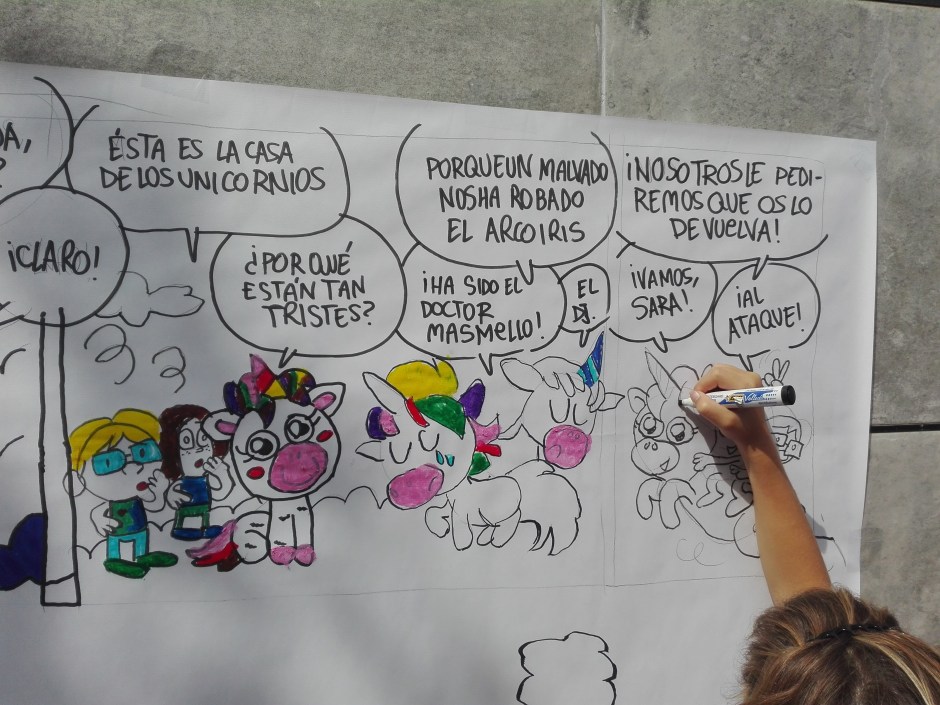 ÉSTA ES LA CASA
DE LOS UNICORNIOS
¡CLARO!
¿POR QUÉ
ESTÁN TAN
TRISTES?
PORQUE UN MALVADO
NOS HA ROBADO
EL ARCOIRIS
¡HA SIDO EL
DOCTOR
MASMELLO!
EL
¡NOSOTROS LE PEDI-
REMOS QUE OS LO
DEVUELVA!
¡VAMOS,
SARA!
¡AL
ATAQUE!